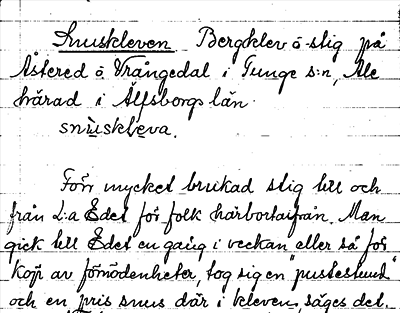 Snuskleven Bergklev ö stig på
Åstered ö. Vrångedal i Tunge s:n, Ale
härad i Älfsborgs län.
snuskleva.
Förr mycket brukad stig till och
från L:a Edet för folk härbortaifrån. Man
gick till Edet en gång i veckan eller så för
köp av förnödenheter, tog sig en "pustestund"
och en pris snus där i kleven, säges det.